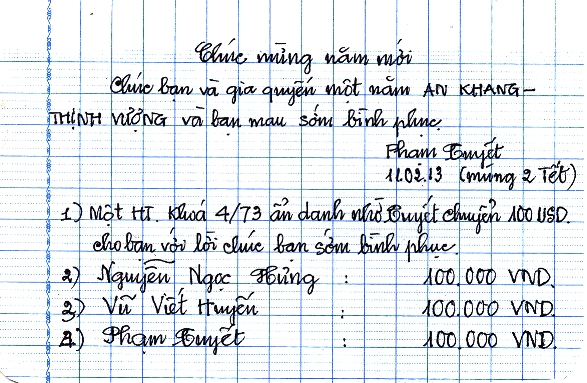 Chúc mừng năm mới
Chúc bạn và gia quyến một năm AN KHANG –
THỊNH VƯỢNG và bạn mau sớm bình phục
Phạm Tuyết
11.02.13 (mùng 2 Tết)
1) Một HT. Khoá 4/73 ẩn danh nhờ Tuyết chuyển 100 USD.
cho bạn với lời chúc bạn sớm bình phục.
2) Nguyễn Ngọc Hưng : 100.000 VND.
3) Vũ Viết Huyến : 100.000 VND.
4) Phạm Tuyết : 100.000 VND.